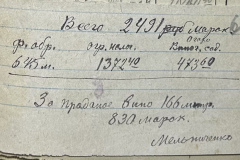 Всего 2491 руб Марок
Ф. обр. огр. нала. Виног. сад.
645 м. 1372 40 473 60
За проданое вино 166 литр.
830 марок.
Мельниченко